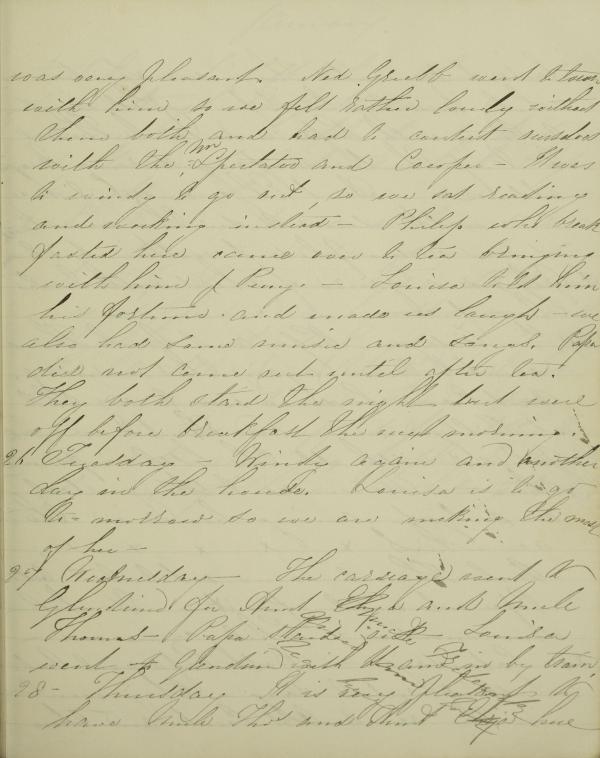 was very pleasant. Ned Grubb went to town
with him so we felt rather lonely without
them both and had to content ourselves
with the Mr Spectator and Cooper - It was
to windy to go out, so we sat reading
and working instead - Philip who break
fasted here came over to tea bringing
with him - Louisa told him
his fortune and made us laugh - we
also had some music and songs. Papa
did not come out until after tea.
They both staid the night but were
off before breakfast the next morning.
26 Tuesday - Windy again and another
day in the house. Louisa is to go
to-morrow so we are making the most
of her -
27 Wednesday - The carriage went to
for Aunt Eliza and Uncle
Thomas - Papa Louisa
went to with and in by train,
28 - Thursday It is very pleasant to
have Uncle Thos and Aunt Eliza here